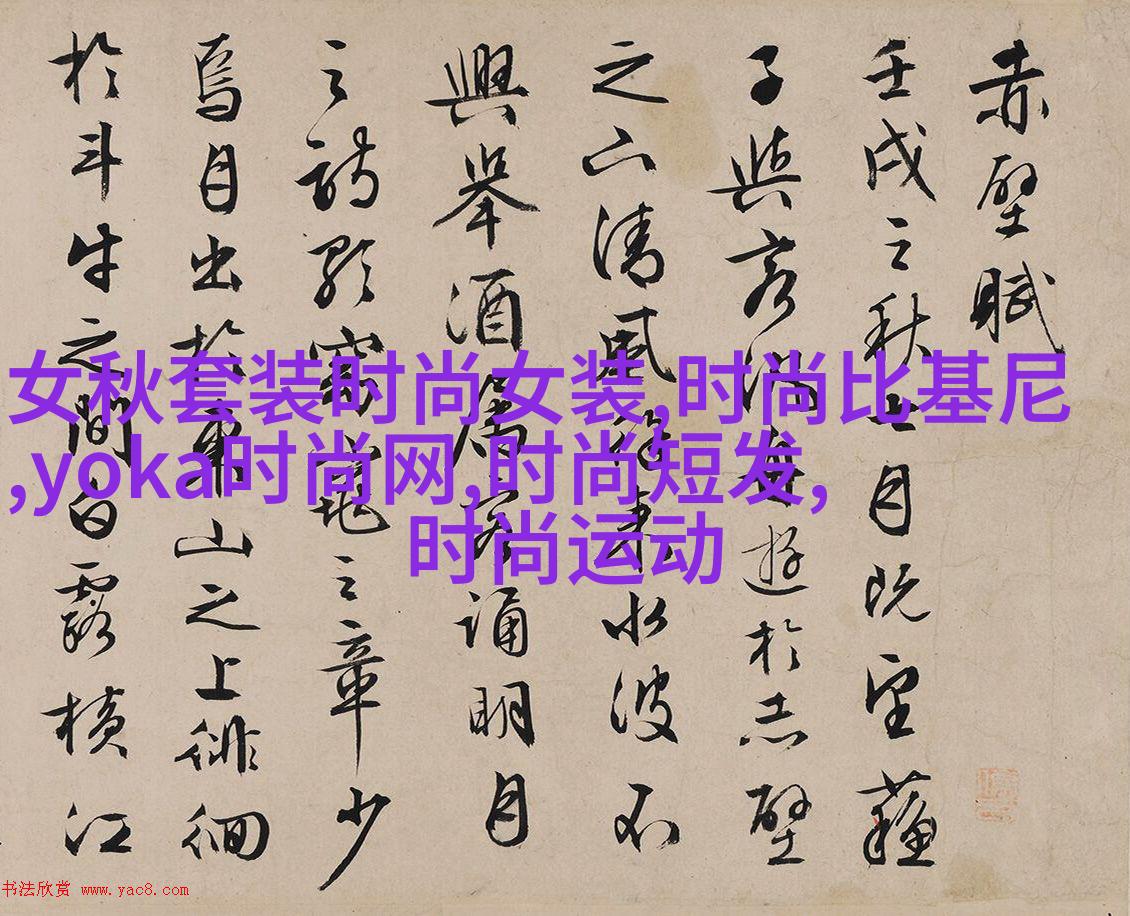 赤壁賦
壬戌之秋七月既望蘇
子與客泛舟遊於赤壁
之下清風徐來水波不
興舉酒屬客誦明月
之詩歌窈窕之章少
焉月出於東山之上徘徊
於斗牛之間白露橫江
女秋套装时尚女装,时尚比基尼
,yoka时尚网,时尚短发,
时尚运动
书法欣赏 www.yac8.com